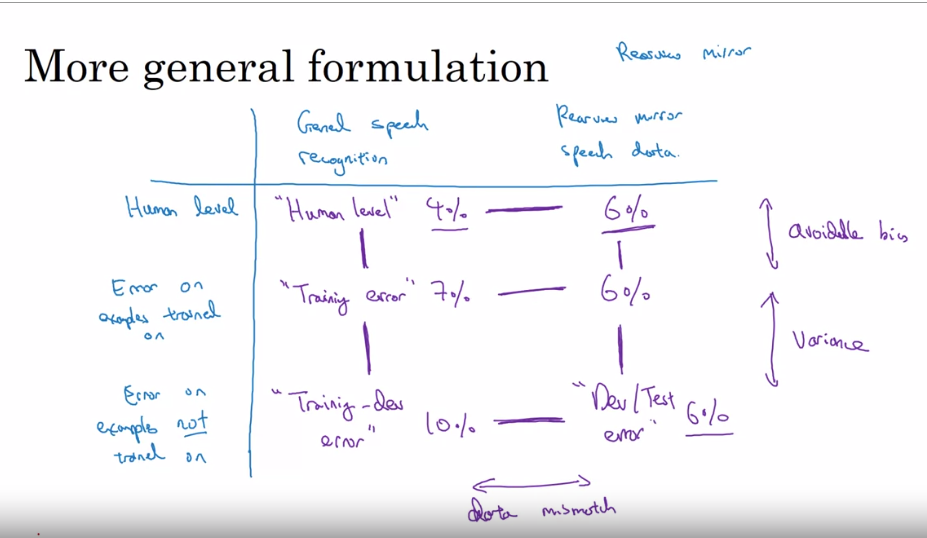 More general formulation
Rearview mirror
General speech
recognition
Rearview mirror
speech data.
Human level
"Human level" 4% 6%
avoidable bias
Error on
examples trained
on
"Training error" 7% 6%
Variance
Error on
examples not
trained on
"Training-dev
error" 10%
"Dev/Test
error" 6%
data mismatch